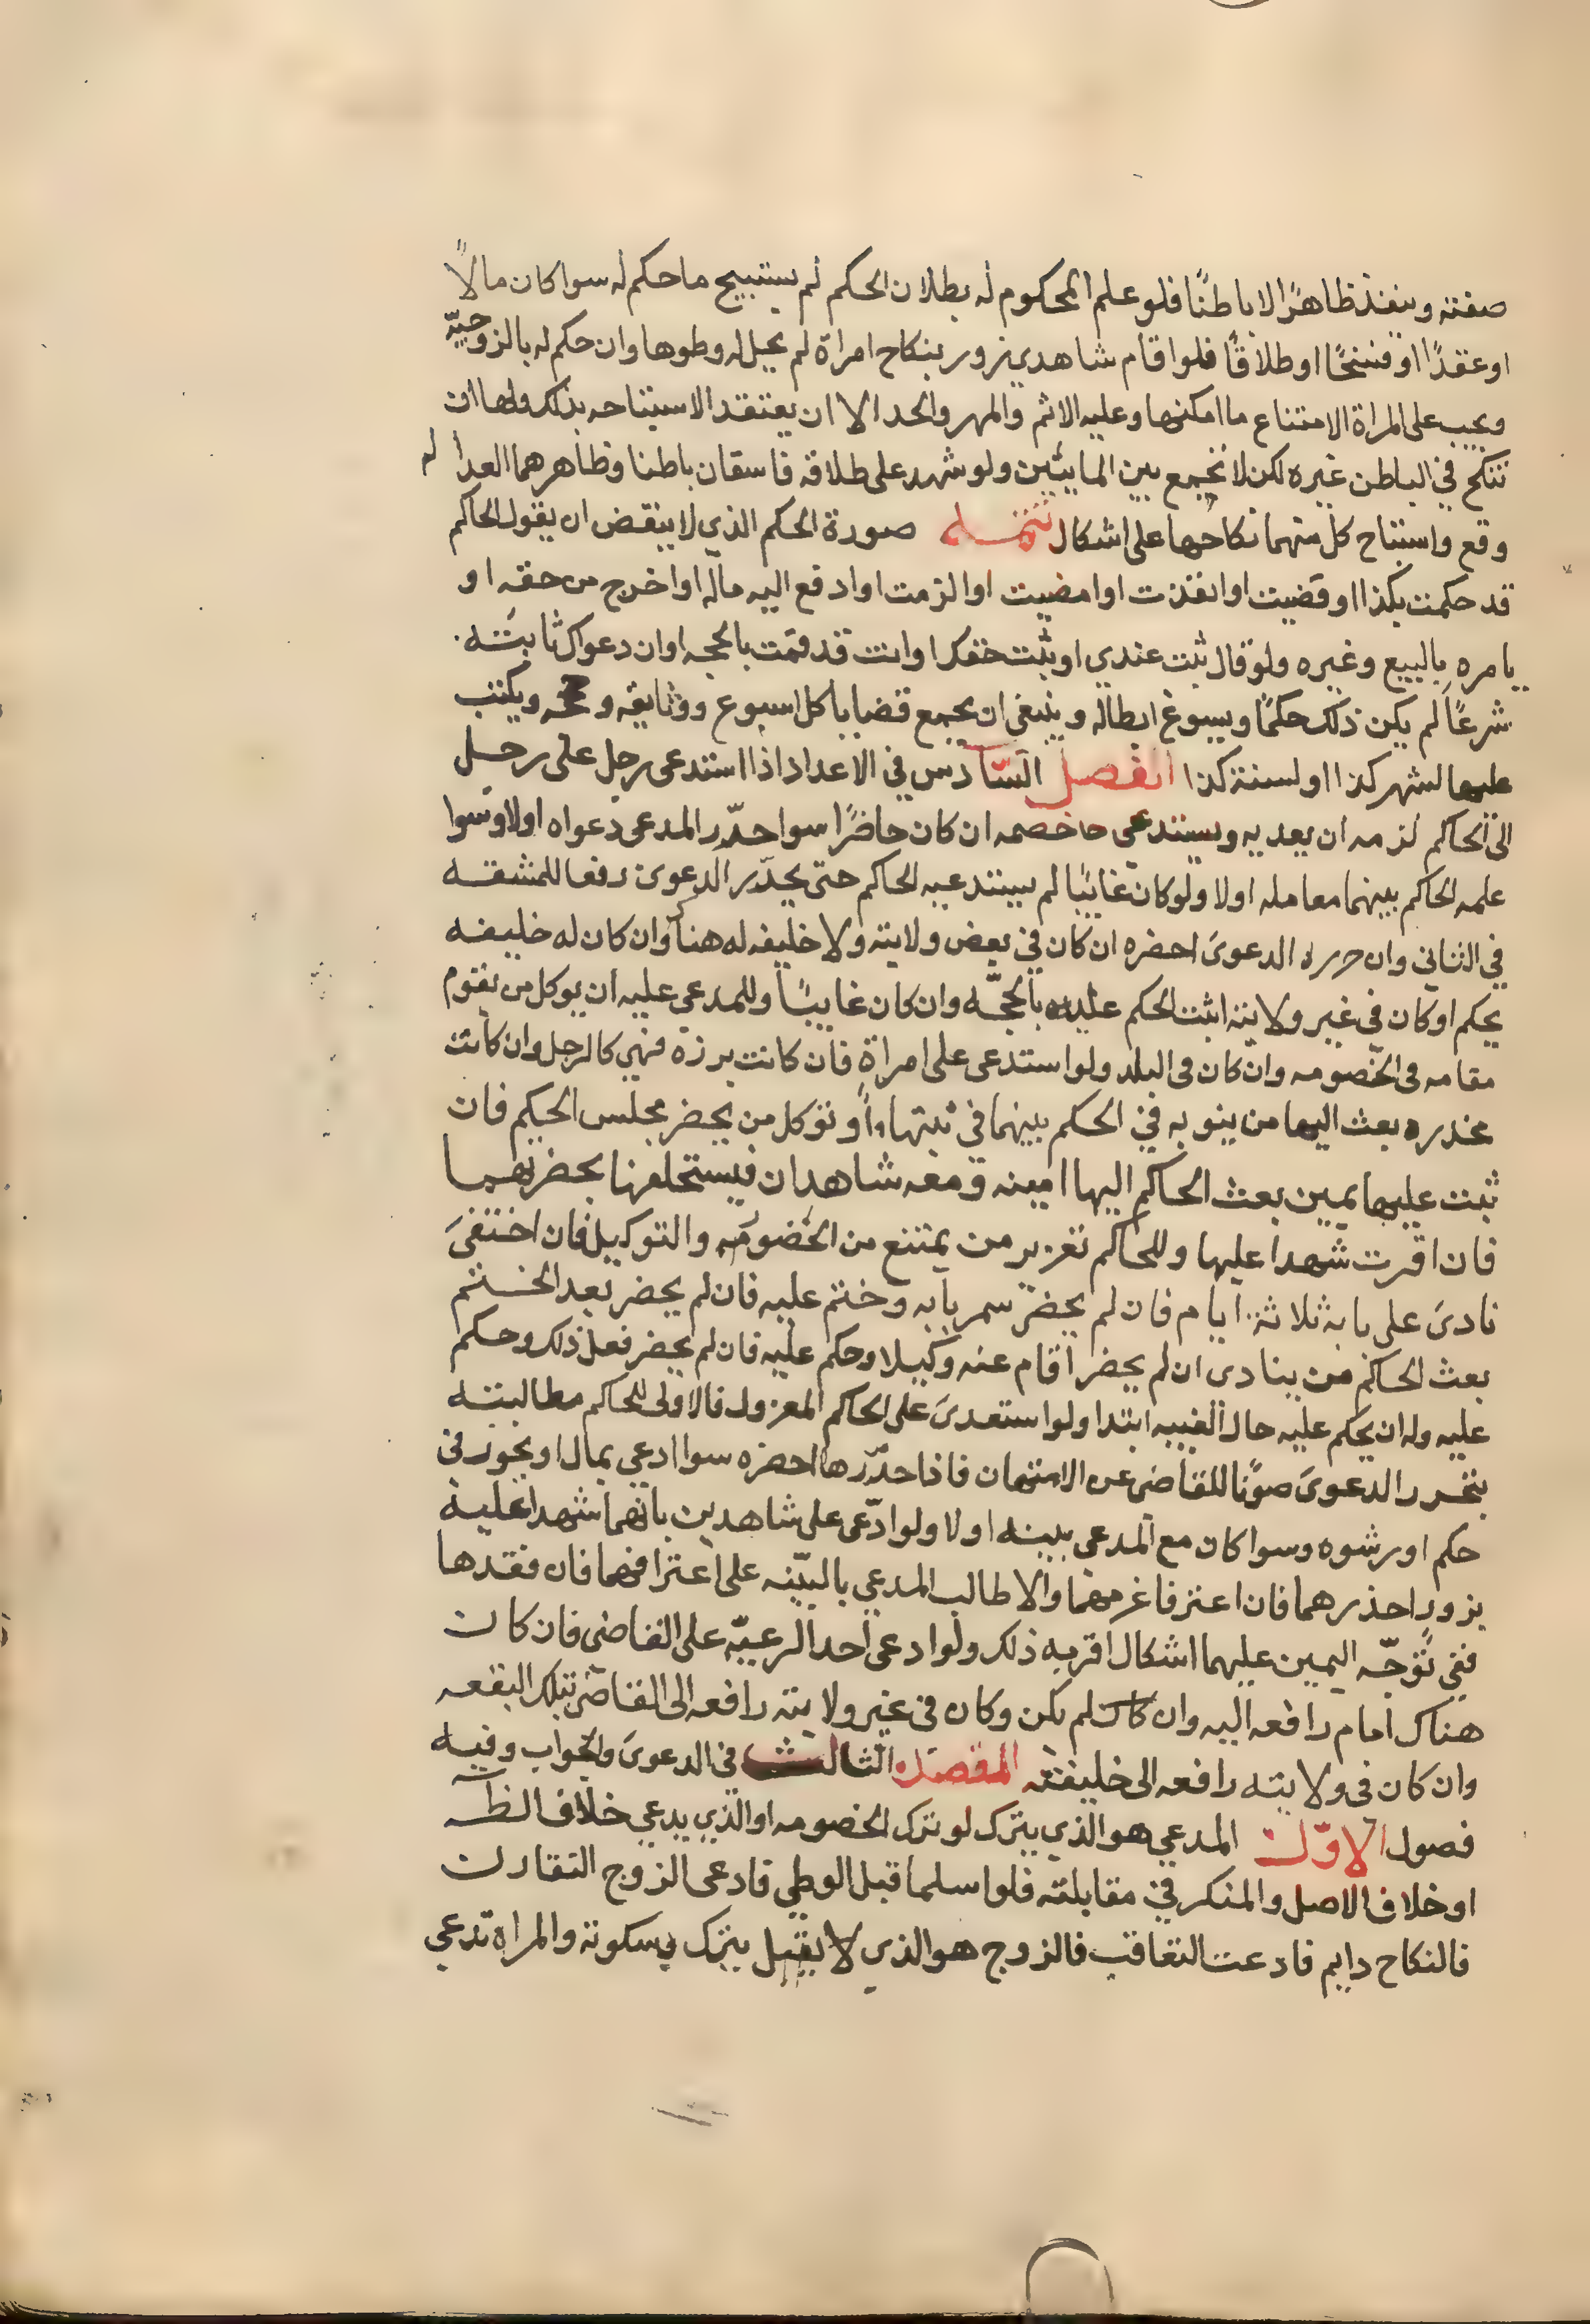 صفته وينفذ ظاهرًا لا باطنًا فلو علم المحكوم له بطلان الحكم لم يستبيح ما حكم له سوا كان مالًا
او عقدًا او فسخًا او طلاقًا فلوا قام شاهدي زور بنكاح امراة لم يحل له وطوها وان حكم له بالزوجيّه
ويجب على المراة الامتناع ما امكنها وعليه الاثم والمهر والحد الا ان يعتقد الاستباحه بذلك ولها ان
تنكح في الباطن غيره لكن لا تجمع بين المايئين ولو شهد على طلاقه فاسقان باطنا وظاهرهما العدا لم
وقع واستباح كل منهما نكاحها على اشكال تتمه صورة الحكم الذي لا ينقض ان يقول الحاكم
قد حكمت بكذا او قضيت او انفذت او امضيت او الزمت او ادفع اليه ماله او اخرج من حقه او
يامره بالبيع وغيره ولو قال ثبت عندي او ثبت حقك او انت قد قمت بالحجه او ان دعواك ثابته
شرعًا لم يكن ذلك حكمًا ويسوغ ابطاله وينبغي ان يجمع قضايا كل اسبوع ووثايقه و ويكتب
عليها لشهر كذا او لسنة كذا الفصل السّادس في الاعداد اذا استدعى رجل على رجل
الى الحاكم لزمه ان يعديه ويستدعي خصمه ان كان حاضرًا سوا حرّر المدعي دعواه اولا وسوا
علمه الحاكم بينهما معامله اولا ولو كان غايبًا لم يستدعيه الحاكم حتى يحرّر الدعوى رفعا للمشقه
في الثاني وان حرره الدعوى احضره ان كان في بعض ولايته ولا خليفه له هناك وان كان له خليفه
يحكم او كان في غير ولايته اثبت الحكم عليه بالحجّه وان كان غايبًا وللمدعي عليه ان يوكل من يقوم
مقامه في الخصومه وان كان في البلد ولو استدعى على امراة فان كانت برزه فهي كالرجل وان كانت
مخدره بعث اليها من ينوبه في الحكم بينهما في بيتها او توكل من يحضر مجلس الحكم فان
ثبت عليها يمين بعث الحاكم اليها امينه ومعه شاهدان فيستحلفها بحضرتهما
فان اقرت شهدا عليها وللحاكم تعزير من يمتنع من الخصومه والتوكيل فان اختفى
نادى على بابه ثلاثة ايام فان لم يحضر سمر بابه وختم عليه فان لم يحضر بعد الختم
بعث الحاكم من ينادي ان لم يحضر اقام عنه وكيلا وحكم عليه فان لم يحضر فعل ذلك وحكم
عليه وله ان يحكم عليه حال الغيبه ابتدا ولو استعدى على الحاكم المعزول فالاولى للحاكم مطالبته
بتحرر الدعوى صونًا للقاضي عن الامتهان فاذا حرّرها احضره سوا ادعي بمال او بجور في
حكم او رشوه وسوا كان مع المدعي بينه اولا ولو ادّعى على شاهدين بانهما شهدا عليه
بزور احذرهما فان اعترفا غرمهما والا طالب المدعي بالبيّنه على اعترافهما فان فقدها
ففي توجّه اليمين عليهما اشكال اقربه ذلك ولو ادعى احد الرعيّه على القاضي فان كان
هناك امام رافعه اليه وان لم يكن وكان في غير ولايته رافعه الى القاضي تبلك البقعه
وان كان في ولايته رافعه الى خليفته المقصد الثالث في الدعوى والجواب وفيه
فصول الاوّل المدعي هو الذي يترك لو ترك الخصومه او الذي يدعي خلاف الظـ
او خلاف الاصل والمنكر في مقابلته فلو اسلما قبل الوطي فادعى الزوج التقارن
فالنكاح دايم فادعت التعاقب فالزوج هو الذي لا يترك بسكوته والمراة تدعي